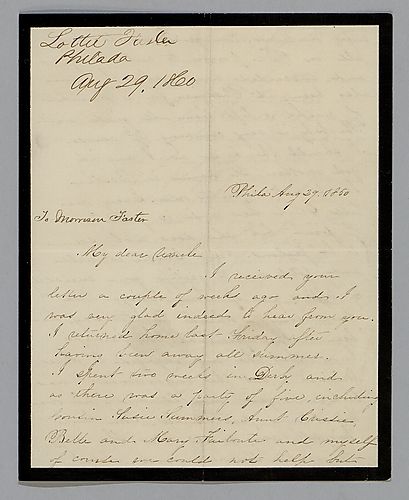 Lottie Foster
Philada
Aug 29, 1860
Phila Aug 29, 1860
To Morrison Foster
My dear Uncle
I received your
letter a couple of weeks ago and I
was very glad indeed to hear from you.
I returned home last Friday after
having been away all summer.
I spent two weeks in Derby and
as there was a party of five, including
cousin Susie Simmers, Aunt Cassie,
Belle and Mary and myself
of course we could not help but